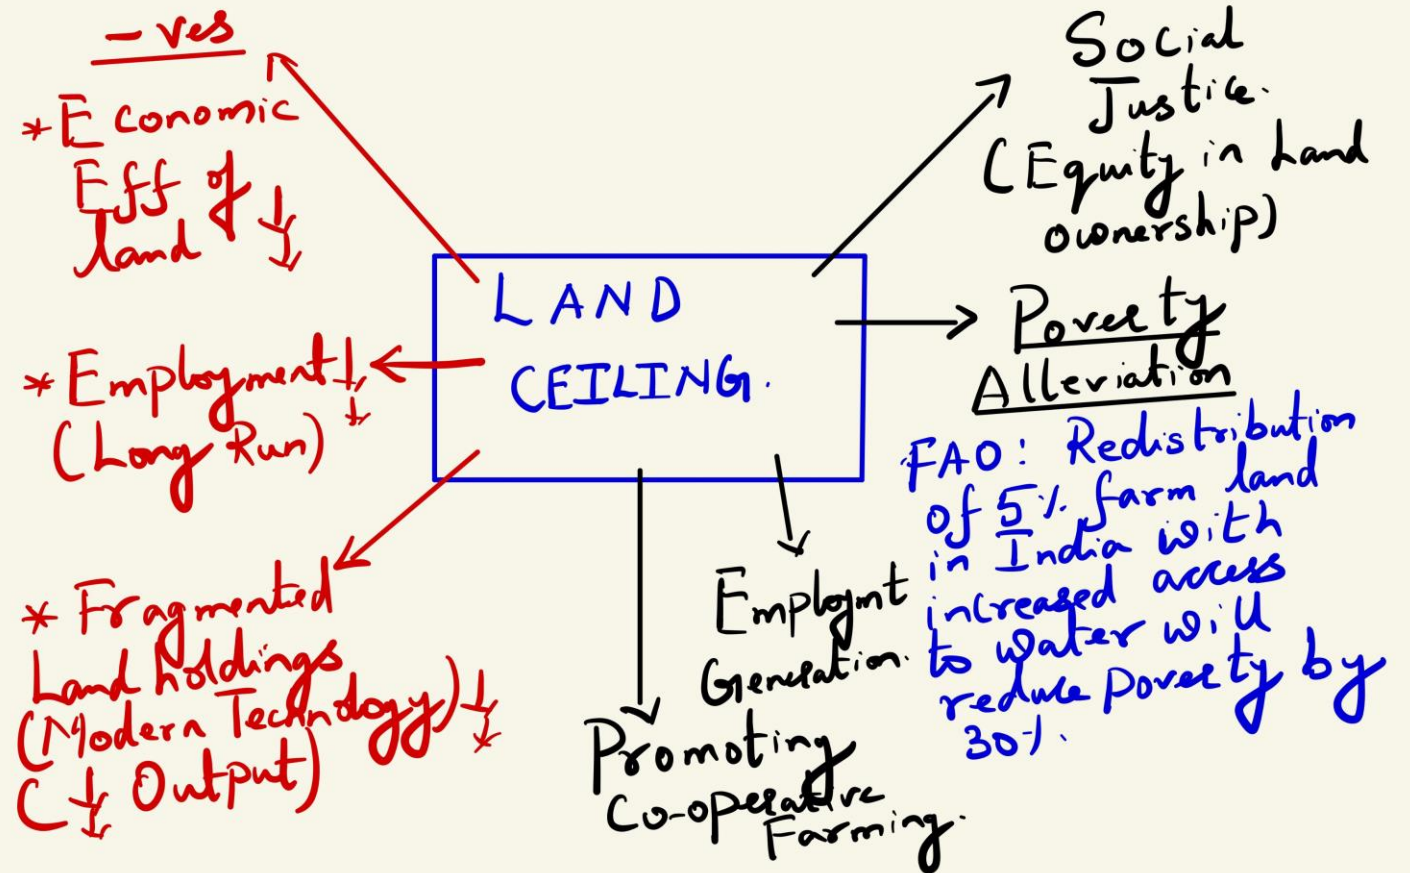 -ves
* Economic
Eff of ↓
land
* Employment↓
(Long Run)
* Fragmented
Land holdings
(Modern Technology)↓
(↓ Output)
LAND
CEILING.
Social
Justice.
(Equity in Land
ownership)
Poverty
Alleviation
FAO: Redistribution
of 5% farm land
in India with
increased access
to water will
reduce poverty by
30%.
Employmt
Generation.
Promoting
Co-operative
Farming.